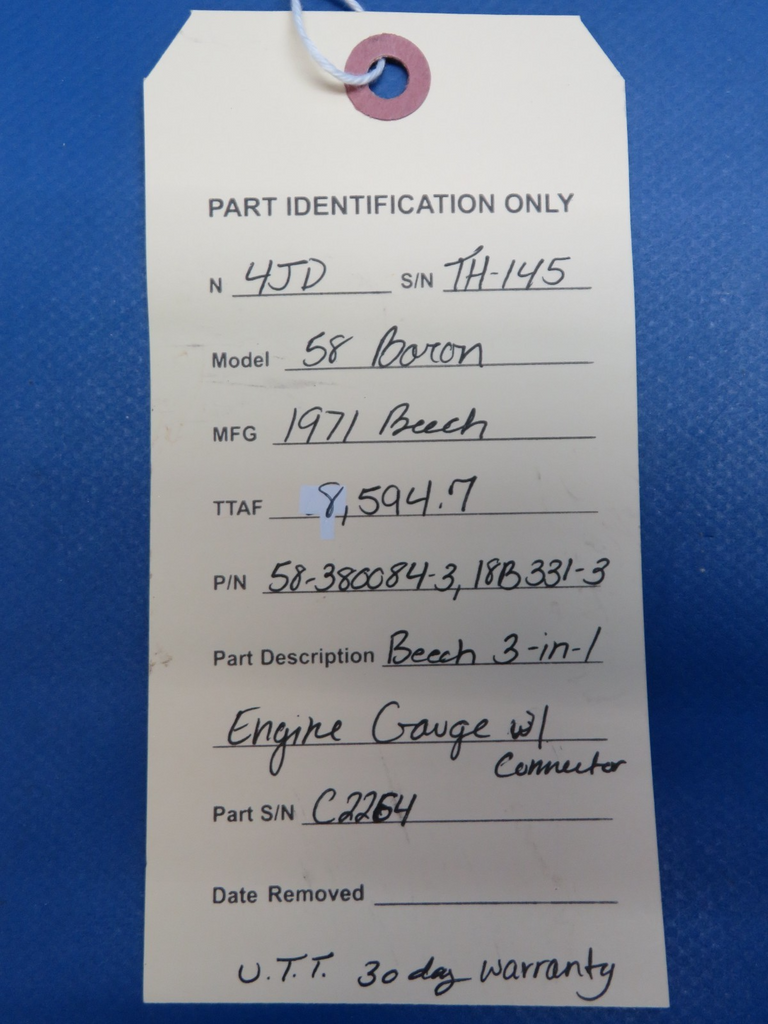 PART IDENTIFICATION ONLY
N 4JD S/N TH-145
Model 58 Baron
MFG 1971 Beech
TTAF 8,594.7
P/N 58-380084-3, 18B331-3
Part Description Beech 3-in-1
Engine Gauge w/
Connector
Part S/N C2264
Date Removed
U.T.T. 30 day warranty